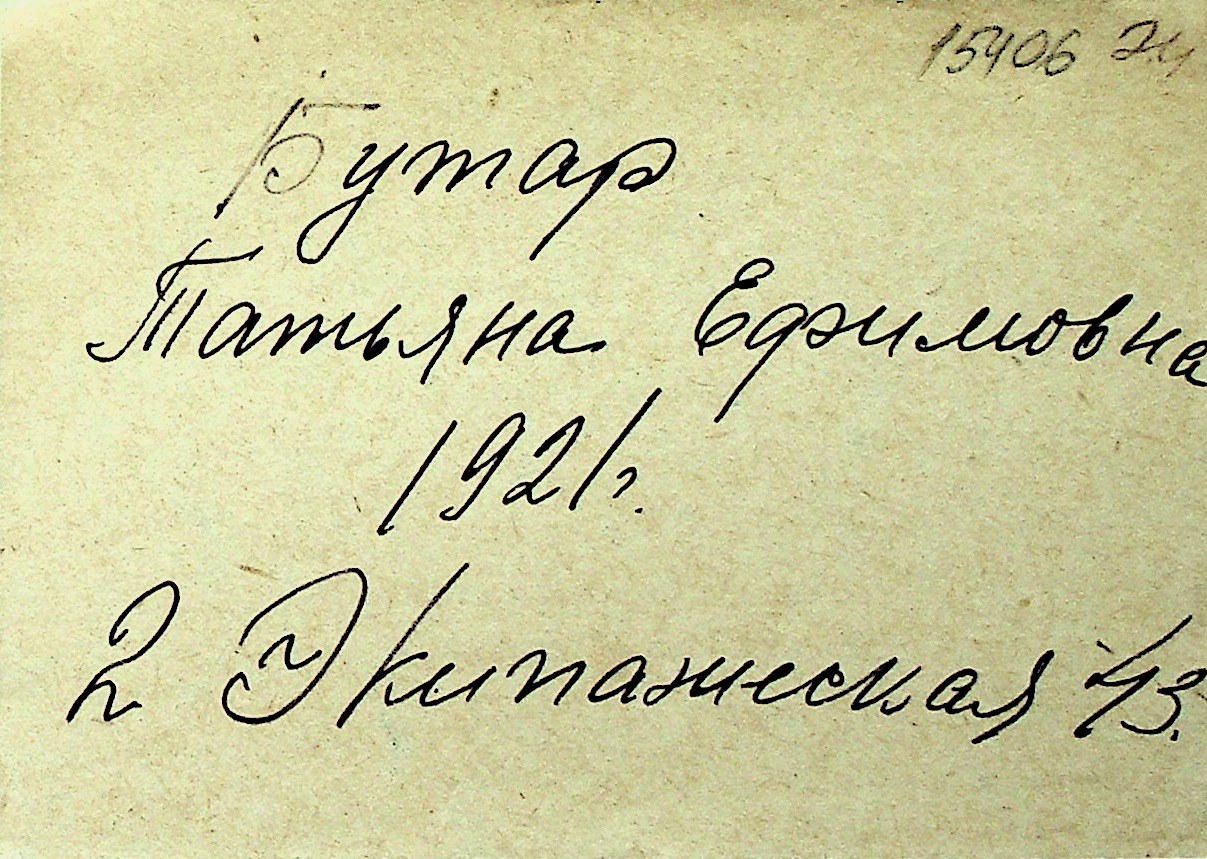 15406 Эч
Бутар
Татьяна Ефимовна
1921г.
2 Экипажеская 43.